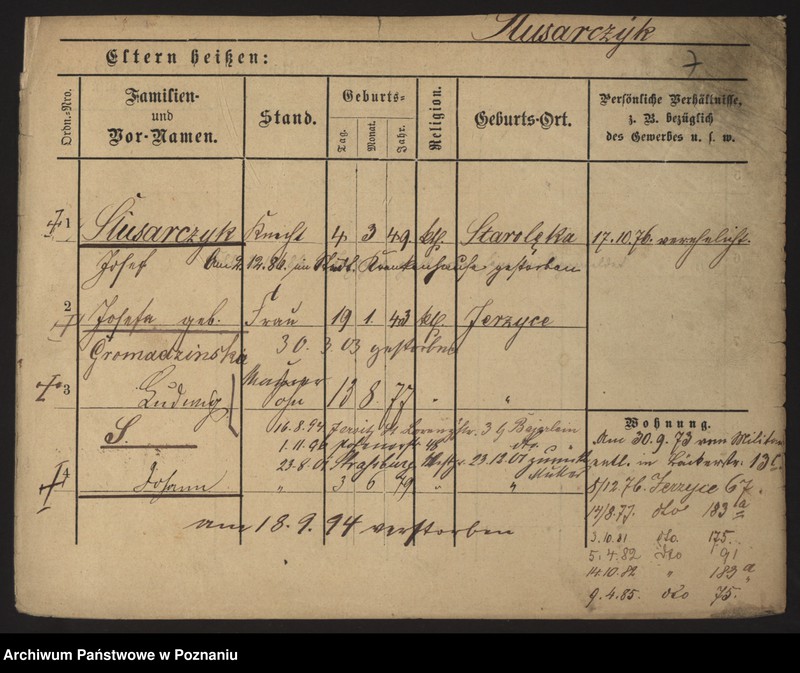 Slusarczyk
7
Eltern heißen:
Ordn.-Nro.
Familien- und Vor-Namen.
Stand.
Geburts-
Tag.
Monat.
Jahr.
Religion.
Geburts-Ort.
Persönliche Verhältnisse, z. B. bezüglich des Gewerbes u. s. w.
1 Slusarczyk Knecht 4 3 49 kth. Starolęka 17.10.76. verehelicht.
Josef Am 2. 12.86. im Städt. Krankenhause gestorben
2 Josefa geb. Frau 19 1. 43 kth. Jerzyce
Gromadzinska 30. 3. 03 gestorben
3 Ludwig 13 8. 77 " "
16.8.94 3 b
S. 1.11.96 48 dto "
23.8.01 Strasburg Westpr. 23.12.01 zurück
Mutter
4 Johann " 3 6 79 " "
am 18.9.94 verstorben
Wohnung.
Am 30.9.73 vom Militär
entl. in Bäckerstr. 13c.
8/12.76. Jerzyce 67.
14/8.77. dto 183a
3.10.81 dto. 175.
5.4.82 dto 91
14.10.82 " 183a
9.4.85. dto 75.
Archiwum Państwowe w Poznaniu